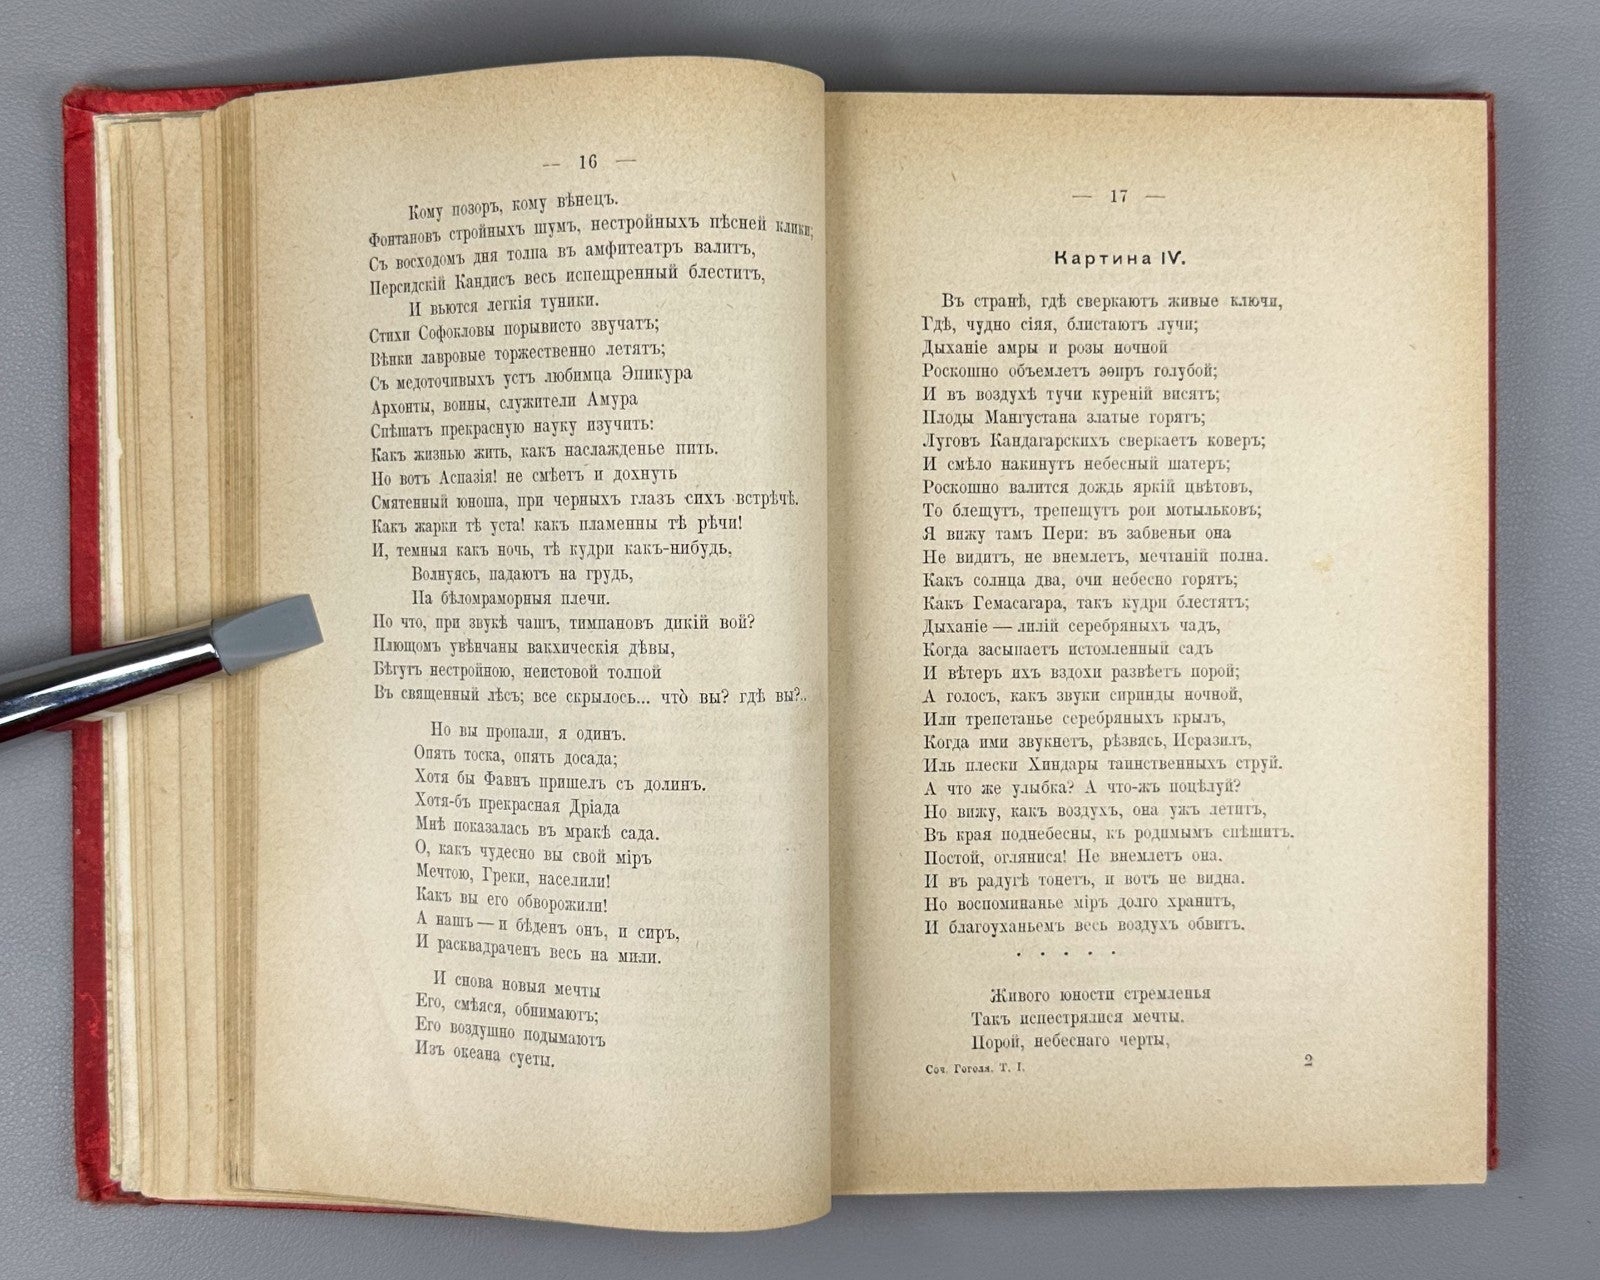 — 16 —
Кому позоръ, кому вѣнецъ.
Фонтановъ стройныхъ шумъ, нестройныхъ пѣсней клики;
Съ восходомъ дня толпа въ амфитеатръ валитъ,
Персидскій Кандисъ весь испещренный блеститъ,
И вьются легкія туники.
Стихи Софокловы порывисто звучатъ;
Вѣнки лавровые торжественно летятъ;
Съ медоточивыхъ устъ любимца Эпикура
Архонты, воины, служители Амура
Спѣшатъ прекрасную науку изучить:
Какъ жизнью жить, какъ наслажденье пить.
Но вотъ Аспазія! не смѣетъ и дохнуть
Смятенный юноша, при черныхъ глазъ сихъ встрѣчѣ.
Какъ жарки тѣ уста! какъ пламенны тѣ рѣчи!
И, темныя какъ ночь, тѣ кудри какъ-нибудь,
Волнуясь, падаютъ на грудь,
На бѣломраморныя плечи.
Но что, при звукѣ чашъ, тимпановъ дикій вой?
Плющомъ увѣнчаны вакхическія дѣвы,
Бѣгутъ нестройною, неистовой толпой
Въ священный лѣсъ; все скрылось... что̀ вы? гдѣ вы?..
Но вы пропали, я одинъ.
Опять тоска, опять досада;
Хотя бы Фавнъ пришелъ съ долинъ.
Хотя-бъ прекрасная Дріада
Мнѣ показалась въ мракѣ сада.
О, какъ чудесно вы свой міръ
Мечтою, Греки, населили!
Какъ вы его обворожили!
А нашъ — и бѣденъ онъ, и сиръ,
И расквадраченъ весь на мили.
И снова новыя мечты
Его, смѣяся, обнимаютъ;
Его воздушно подымаютъ
Изъ океана суеты.
— 17 —
Картина IV.
Въ странѣ, гдѣ сверкаютъ живые ключи,
Гдѣ, чудно сіяя, блистаютъ лучи;
Дыханіе амры и розы ночной
Роскошно объемлетъ эѳиръ голубой;
И въ воздухѣ тучи куреній висятъ;
Плоды Мангустана златые горятъ;
Луговъ Кандагарскихъ сверкаетъ коверъ;
И смѣло накинутъ небесный шатеръ;
Роскошно валится дождь яркій цвѣтовъ,
То блещутъ, трепещутъ рои мотыльковъ;
Я вижу тамъ Пери: въ забвеньи она
Не видитъ, не внемлетъ, мечтаній полна.
Какъ солнца два, очи небесно горятъ;
Какъ Гемасагара, такъ кудри блестятъ;
Дыханіе — лилій серебряныхъ чадъ,
Когда засыпаетъ истомленный садъ
И вѣтеръ ихъ вздохи развѣетъ порой;
А голосъ, какъ звуки сиринды ночной,
Или трепетанье серебряныхъ крылъ,
Когда ими звукнетъ, рѣзвясь, Исразилъ,
Иль плески Хиндары таинственныхъ струй.
А что же улыбка? А что-жъ поцѣлуй?
Но вижу, какъ воздухъ, она ужъ летитъ,
Въ края поднебесны, къ родимымъ спѣшитъ.
Постой, оглянися! Не внемлетъ она.
И въ радугѣ тонетъ, и вотъ не видна.
Но воспоминанье міръ долго хранитъ,
И благоуханьемъ весь воздухъ обвитъ.
. . . . .
Живого юности стремленья
Такъ испестрялися мечты.
Порой, небеснаго черты,
Соч. Гоголя. Т. I. 2